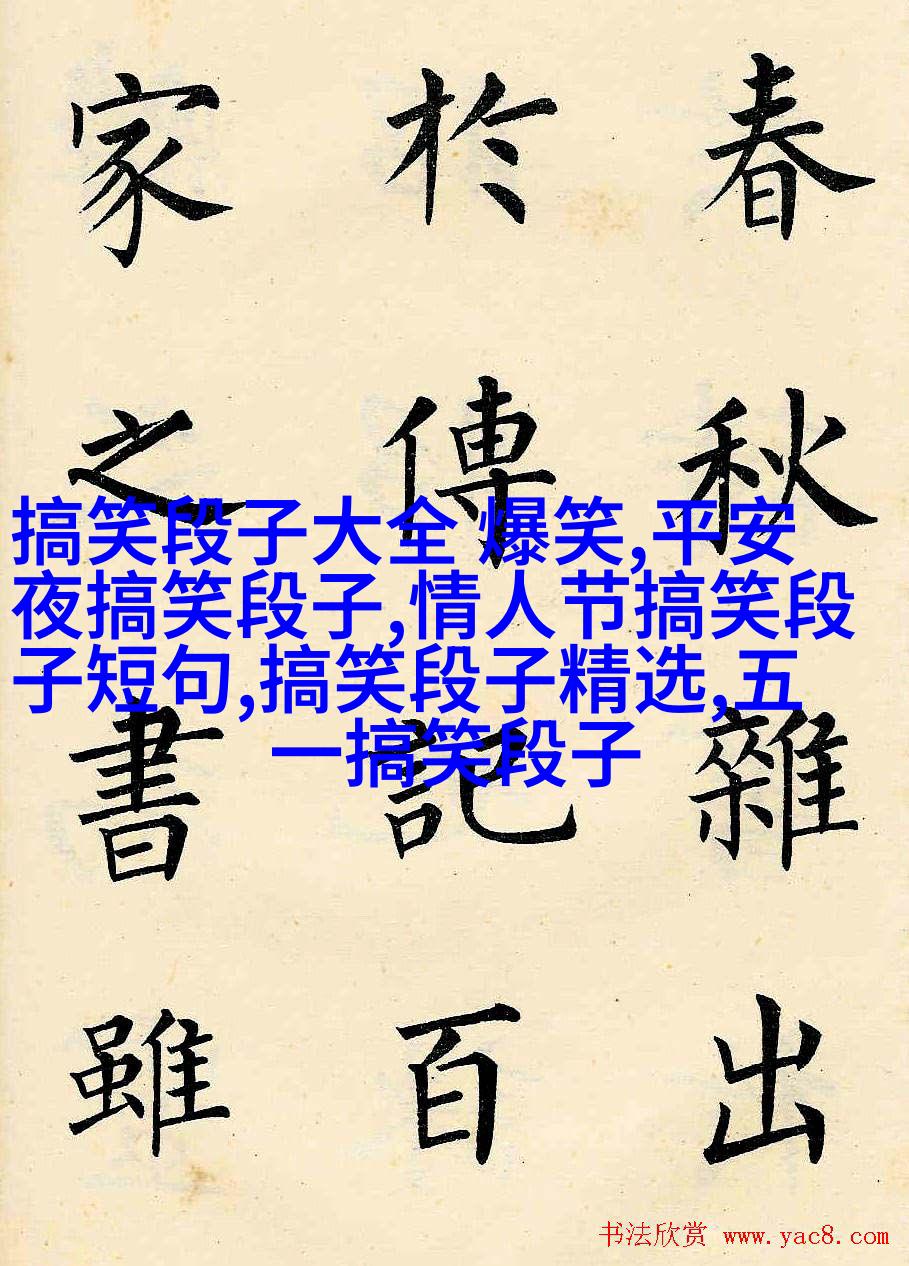 春秋雜出
於傳記百
家之書雖
搞笑段子大全 爆笑,平安
夜搞笑段子,情人节搞笑段
子短句,搞笑段子精选,五
一搞笑段子
书法欣赏 www.yac8.com